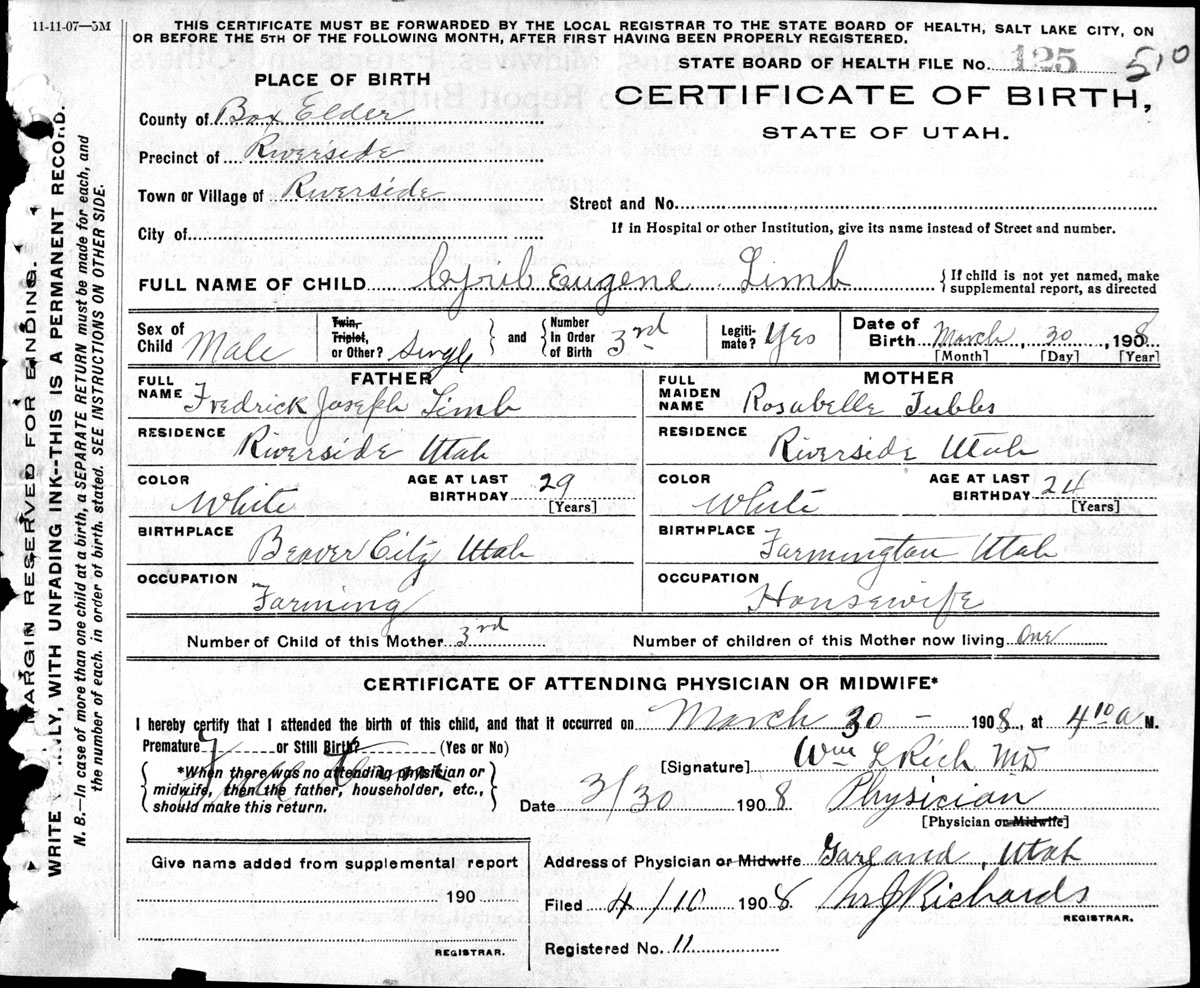 11-11-07—5M
THIS CERTIFICATE MUST BE FORWARDED BY THE LOCAL REGISTRAR TO THE STATE BOARD OF HEALTH, SALT LAKE CITY, ON
OR BEFORE THE 5TH OF THE FOLLOWING MONTH, AFTER FIRST HAVING BEEN PROPERLY REGISTERED.
STATE BOARD OF HEALTH FILE No. 125 510
PLACE OF BIRTH
CERTIFICATE OF BIRTH,
STATE OF UTAH.
County of Box Elder
Precinct of Riverside
Town or Village of Riverside
Street and No.
City of
If in Hospital or other Institution, give its name instead of Street and number.
FULL NAME OF CHILD Cyril Eugene Limb
{If child is not yet named, make
supplemental report, as directed
Sex of Child Male
Twin, Triplet, or Other? Single
and
Number In Order of Birth 3rd
Legitimate? Yes
Date of Birth March 30, 1908
[Month] [Day] [Year]
FATHER
FULL NAME Fredrick Joseph Limb
RESIDENCE Riverside Utah
COLOR White
AGE AT LAST BIRTHDAY 29
[Years]
BIRTHPLACE Beaver City Utah
OCCUPATION Farming
MOTHER
FULL MAIDEN NAME Rosabelle Tubbs
RESIDENCE Riverside Utah
COLOR White
AGE AT LAST BIRTHDAY 24
[Years]
BIRTHPLACE Farmington Utah
OCCUPATION Housewife
Number of Child of this Mother 3rd
Number of children of this Mother now living One
CERTIFICATE OF ATTENDING PHYSICIAN OR MIDWIFE*
I hereby certify that I attended the birth of this child, and that it occurred on March 30 - 1908, at 4 10 a M.
Premature or Still Birth? (Yes or No)
*When there was no attending physician or
midwife, then the father, householder, etc.,
should make this return.
[Signature] Wm L Rich MD
Date 3/30 1908 Physician
[Physician or Midwife]
Give name added from supplemental report
190
REGISTRAR.
Address of Physician or Midwife Garland, Utah
Filed 4/10 1908 Richards
REGISTRAR.
Registered No. 11
MARGIN RESERVED FOR BINDING.
WRITE PLAINLY, WITH UNFADING INK--THIS IS A PERMANENT RECORD.
N. B.—In case of more than one child at a birth, a SEPARATE RETURN must be made for each, and
the number of each, in order of birth, stated. SEE INSTRUCTIONS ON OTHER SIDE.